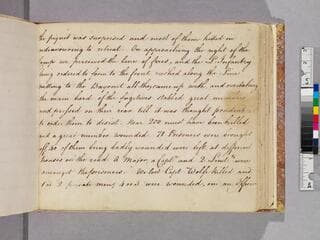 the piquet was surprised and most of them killed in
endeavouring to retreat. On approaching the right of the
Camp we perceived the line of fires, and the Lt Infantry
being ordered to form to the front rushed along the line
putting to the Bayonet all they came up with, and overtaking
the main herd of the fugitives stabbed great numbers
and pressed on their rear till it was thought prudent
to order them to desist. Near 200 must have been killed
and a great number wounded. 71 Prisoners were brought
off; 40 of them being badly wounded were left at different
houses on the road. A Major a Capt. and 2 Lieuts were
amongst the prisoners. We lost Capt Wolfe killed and
1 or 2 private men; 4 or 5 were wounded, one an Officer